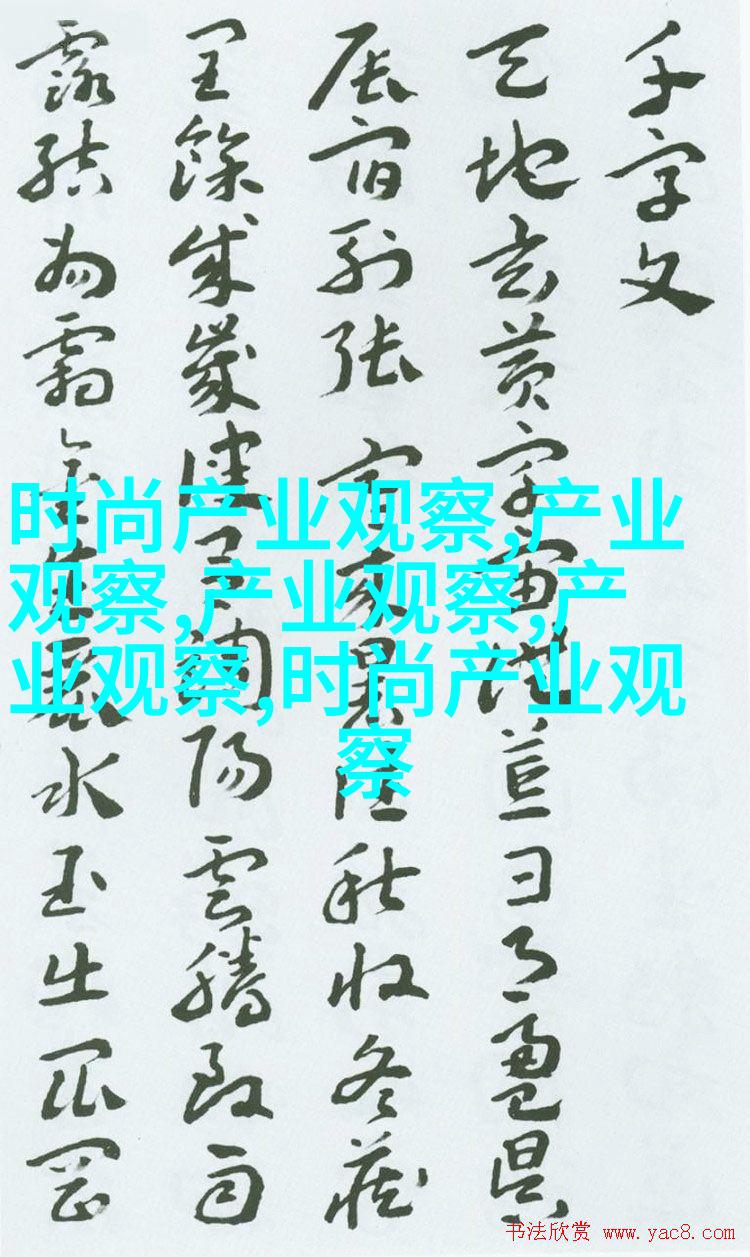 千字文
天地玄黄宇宙洪荒日月盈昃
辰宿列张寒来暑往秋收冬藏
閏餘成歲律呂調陽雲騰致雨
露結為霜金生麗水玉出崑岡
时尚产业观察,产业
观察,产业观察,产
业观察,时尚产业观
察
书法欣赏 www.yac8.com